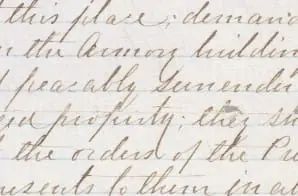 this place; demand
the Armory building
peacably surrender
property; they
the orders of the
to them in